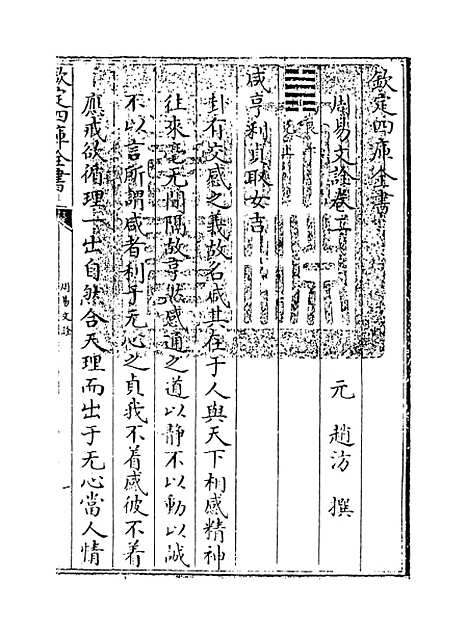 欽定四庫全書
周易文詮卷二
元 趙汸 撰
咸亨利貞取女吉
卦有交感之義故名咸其在于人與天下相感精神
往來毫无間隔故亨然感通之道以靜不以動以誠
不以言所謂咸者利于无心之貞我不着感彼不着
應戒欲循理一出自然合天理而出于无心當人情
欽定四庫全書
周易文詮
一